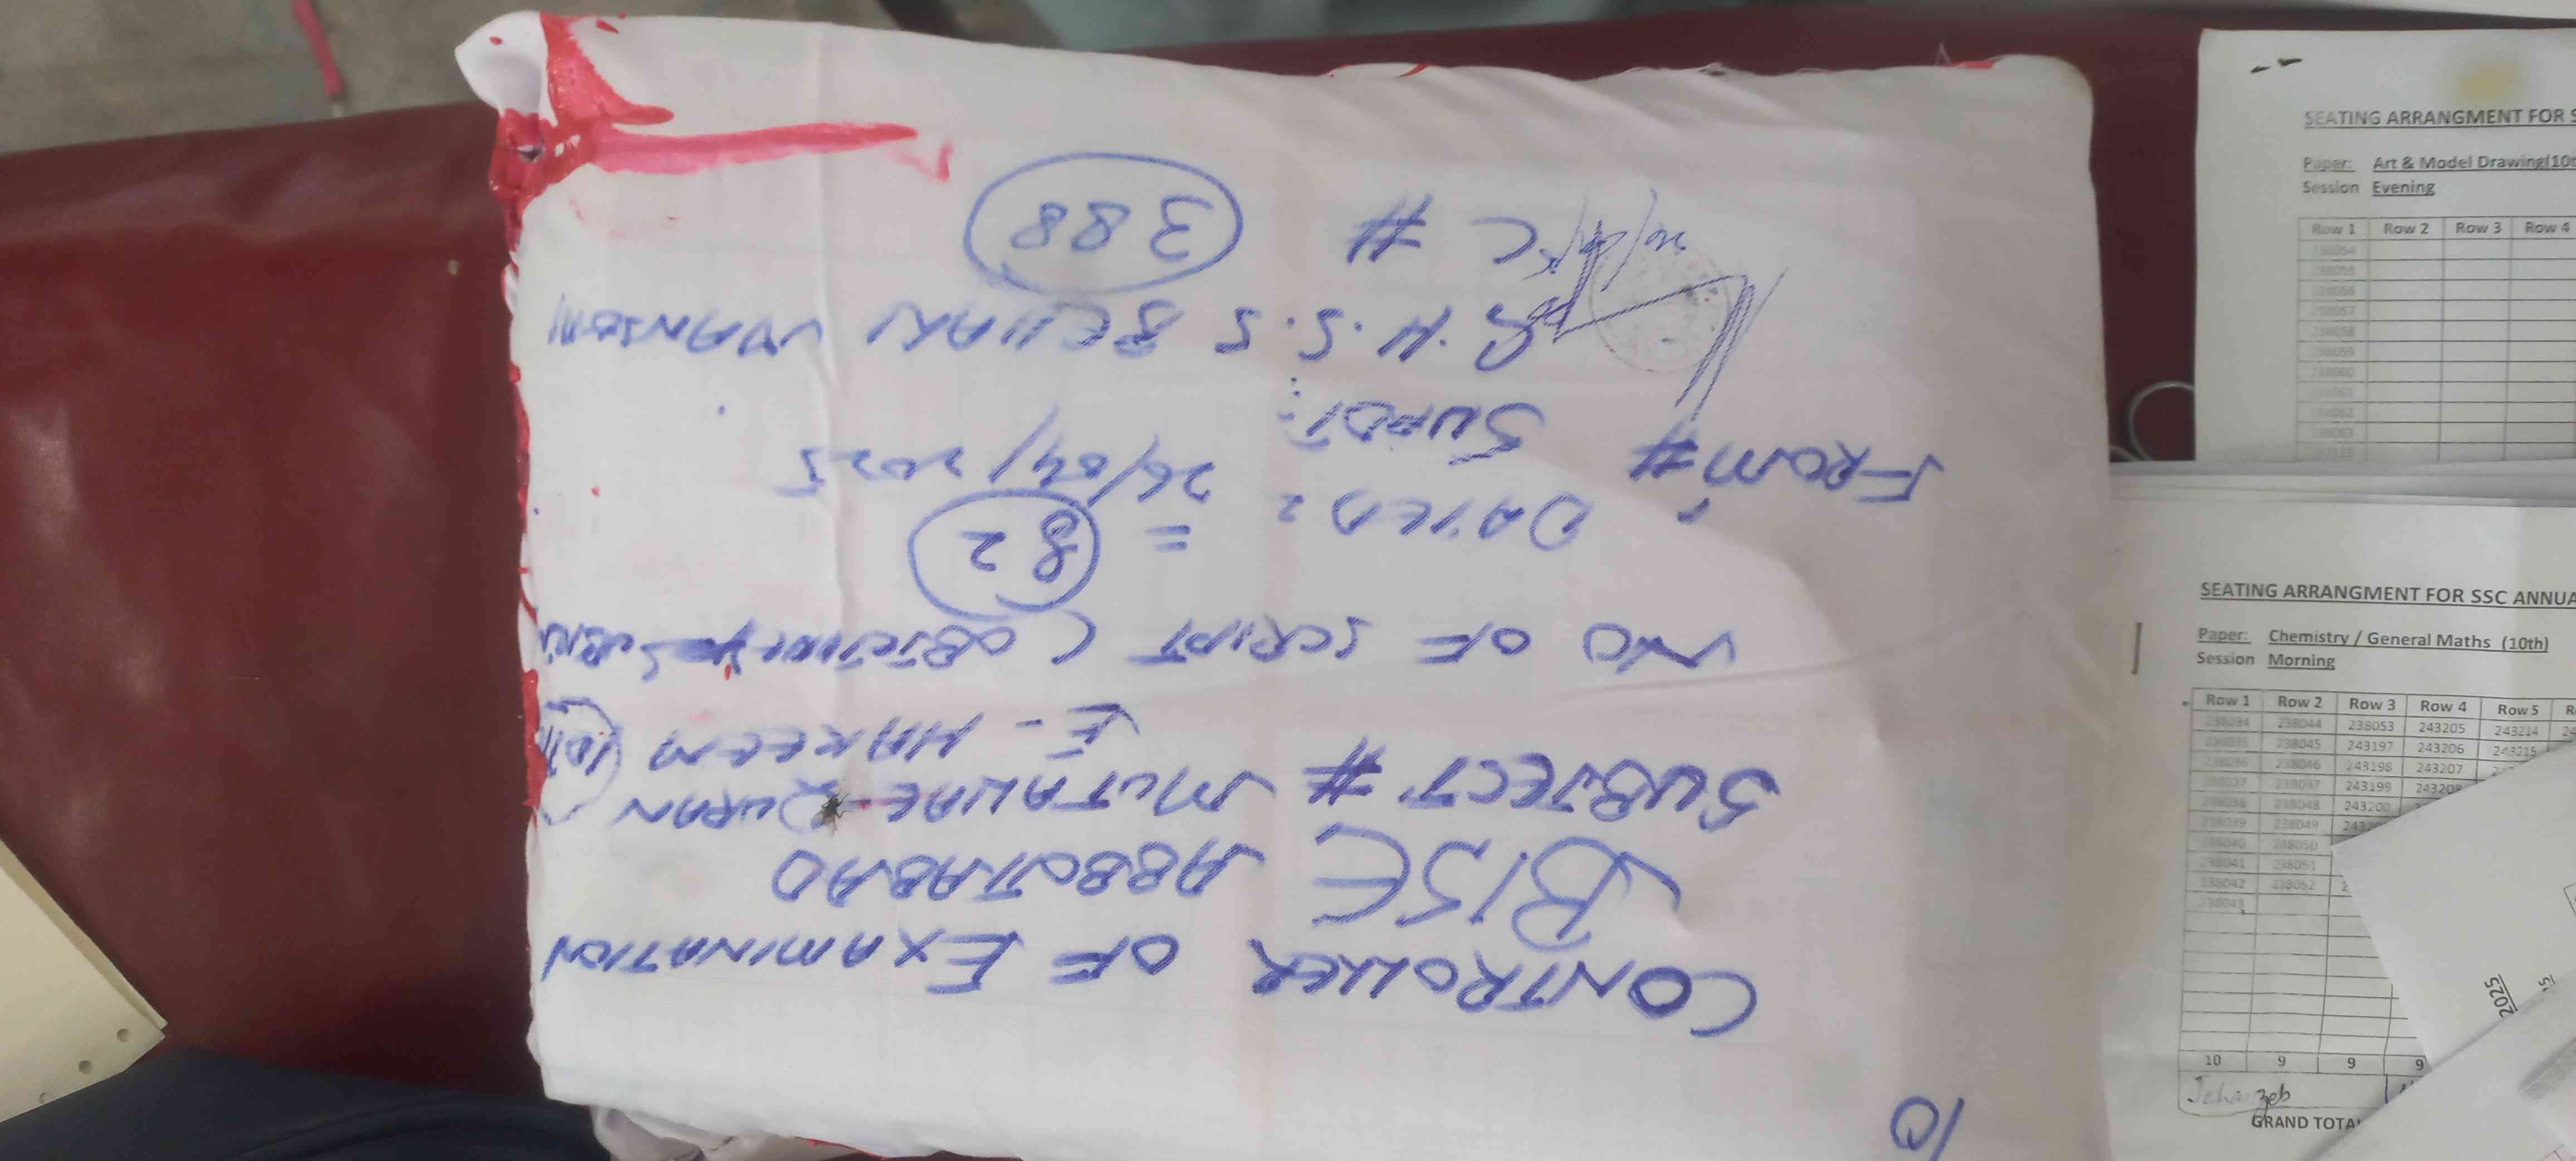 10
CONTROLLER OF EXAMINATION
BISE ABBOTTABAD
SUBJECT # MUTALIAE-QURAN
E-HAKEEM (10th)
NO OF SCRIPT (OBJECTIVE +
= 82
DATED: 26/04/2025
FROM # SUPDT:
G.H.S.S
C # 388
SEATING ARRANGMENT FOR
Paper: Art & Model Drawing(10t
Session Evening
Row 1 Row 2 Row 3 Row 4
238054
238055
238056
238057
238058
238059
238060
238061
238062
238063
SEATING ARRANGMENT FOR SSC ANNUA
Paper: Chemistry / General Maths (10th)
Session Morning
Row 1 Row 2 Row 3 Row 4 Row 5
238034 238044 238053 243205 243214
238035 238045 243197 243206 243215
238036 238046 243198 243207
238037 238047 243199 243208
238038 238048 243200
238039 238049
238040 238050
238041 238051
238042 238052
238043
10 9 9 9
Jehanzeb
GRAND TOTA
2025